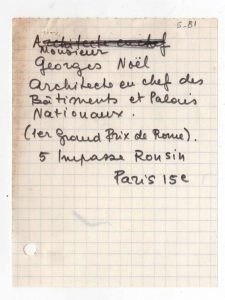 5-81
Architecte en chef
Monsieur
Georges Noël
Architecte en chef des
Bâtiments et Palais
Nationaux.
(1er Grand Prix de Rome).
5 Impasse Ronsin
Paris 15e